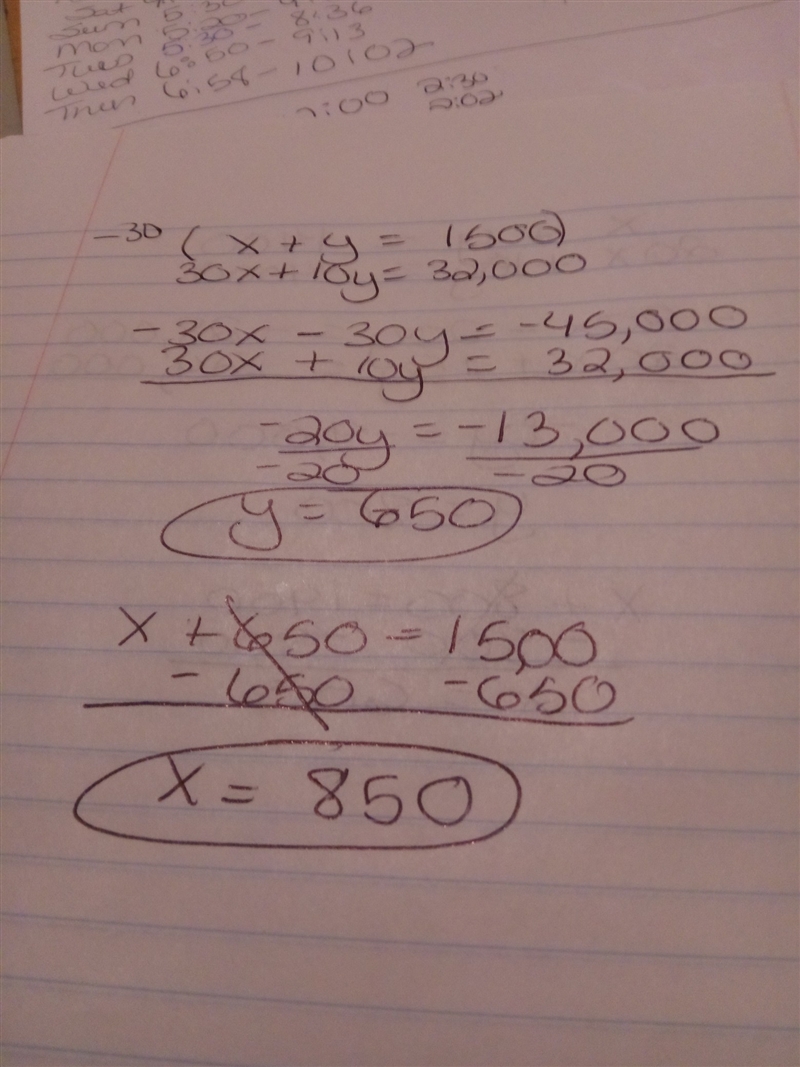 Sun
Mon 6:30 - 9:13
Tues 6:50 -
Wed 6:58 - 10:02
Thur
:00 2:30
2:02
-30 ( x + y = 1500)
30x + 10y = 32,000
-30x - 30y = -45,000
30x + 10y = 32,000
-20y = -13,000
-20 -20
y = 650
x + 650 = 1500
- 650 -650
x = 850